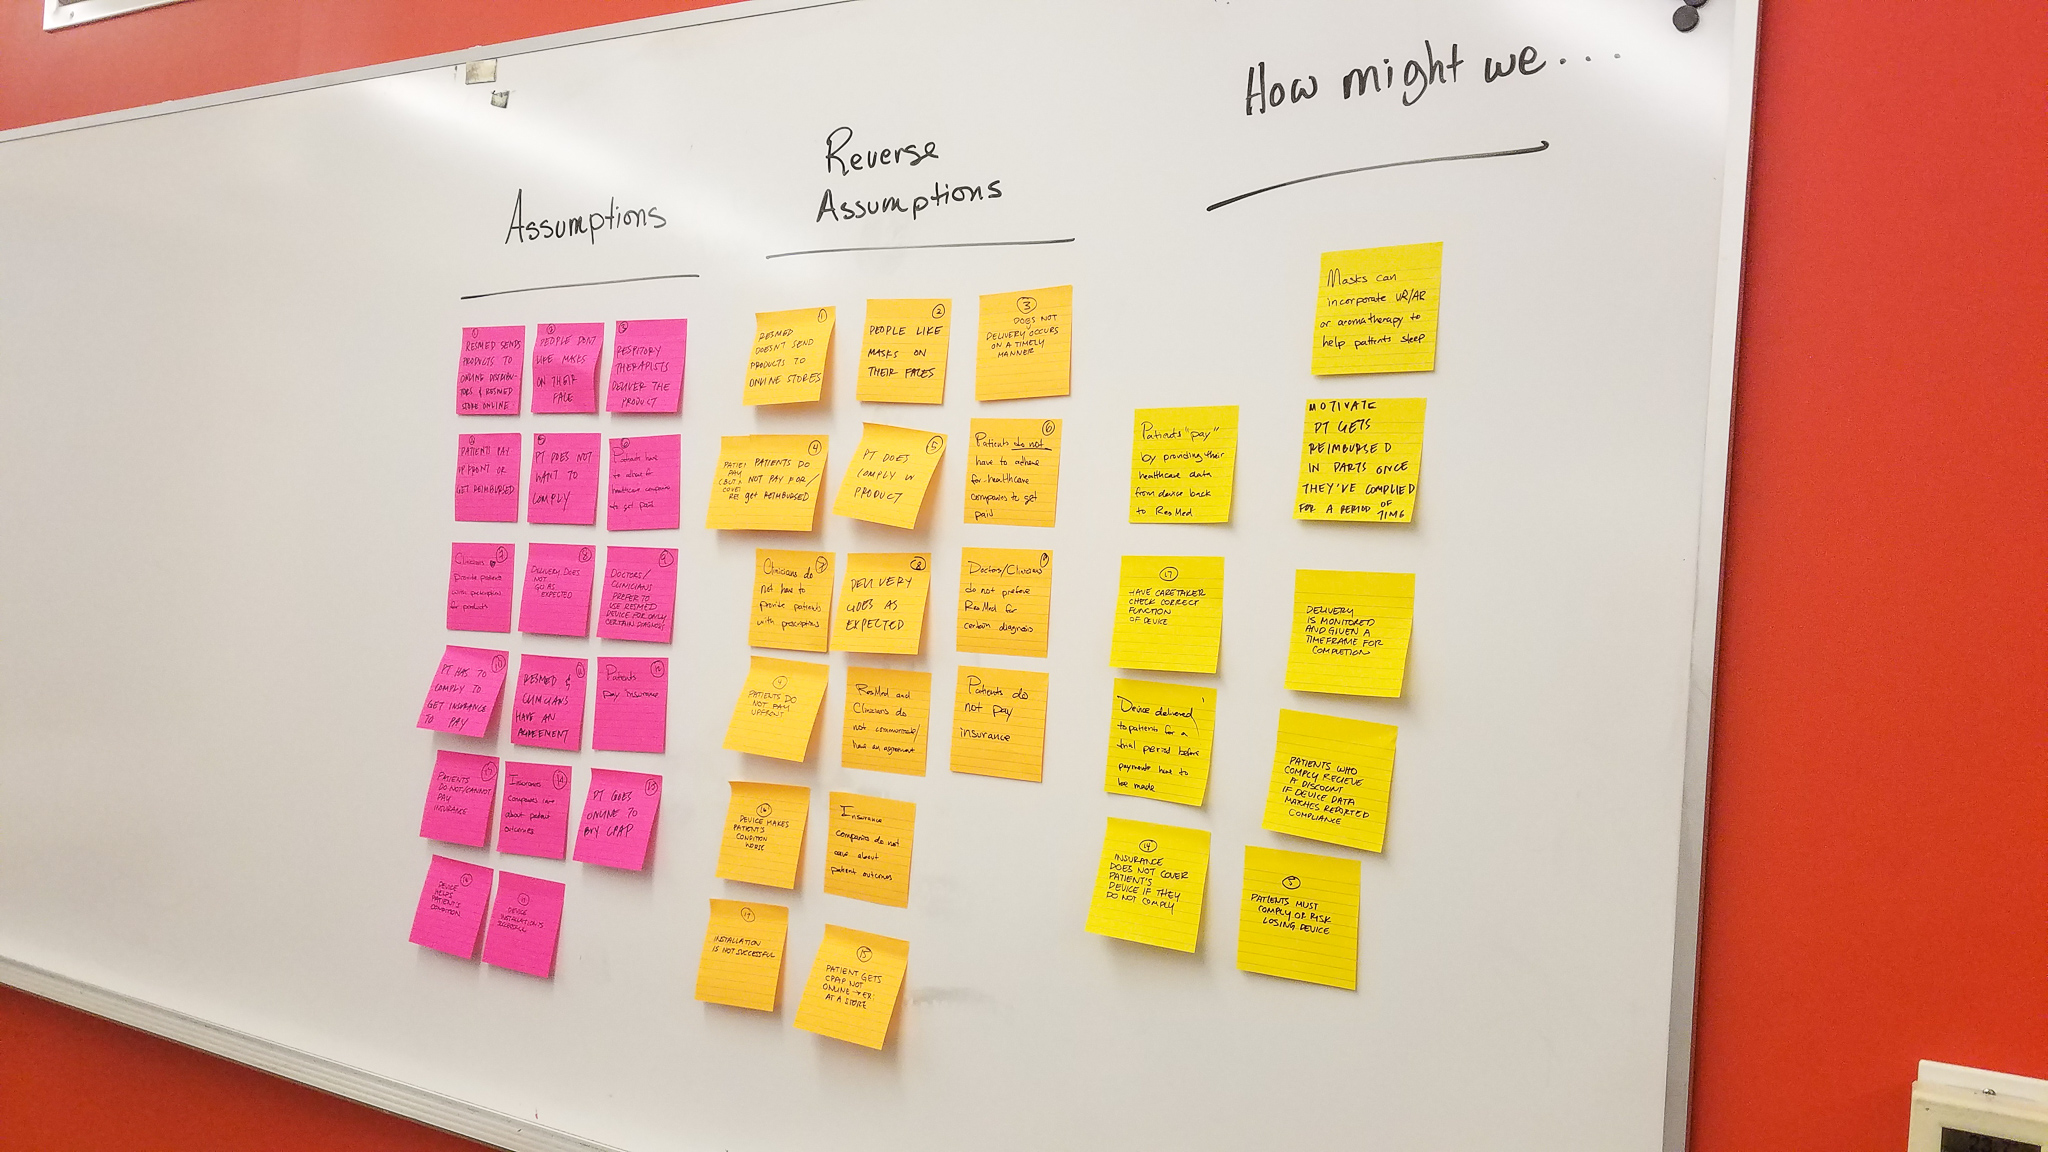 How might we...
Reverse
Assumptions
Assumptions
1
RESMED SENDS
PRODUCTS TO
ONLINE DISTRIBU-
TORS & RESMED
STORE ONLINE
2
PEOPLE DON'T
LIKE MASKS
ON THEIR
FACE
3
RESPITORY
THERAPISTS
DELIVER THE
PRODUCT
4
PATIENTS PAY
UPFRONT OR
GET REIMBURSED
5
PT DOES NOT
WANT TO
COMPLY
6
Patients have
to adhere for
healthcare companies
to get paid
7
Clinicians
provide patients
with prescription
for products
8
DELIVERY DOES
NOT
GO AS
EXPECTED
9
DOCTORS/
CLINICIANS
PREFER TO
USE RESMED
DEVICE FOR ONLY
CERTAIN DIAGNOSIS
10
PT HAS TO
COMPLY TO
GET INSURANCE
TO PAY
11
RESMED &
CLINICIANS
HAVE AN
AGREEMENT
12
Patients
pay insurance
13
PATIENTS
DO NOT/CANNOT
PAY
INSURANCE
14
Insurance
Companies care
about patient
outcomes
15
PT GOES
ONLINE TO
BUY CPAP
DEVICE
HELPS
PATIENT'S
CONDITION
DEVICE
INSTALLATION IS
SUCCESSFUL
1
RESMED
DOESN'T SEND
PRODUCTS TO
ONLINE STORES
2
PEOPLE LIKE
MASKS ON
THEIR FACES
3
DOES NOT
DELIVERY OCCURS
ON A TIMELY
MANNER
4
PATIENTS DO
NOT PAY FOR/
get REIMBURSED
5
PT DOES
COMPLY W
PRODUCT
6
Patients do not
have to adhere
for healthcare
companies to get
paid
7
Clinicians do
not have to
provide patients
with prescriptions
8
DELIVERY
GOES AS
EXPECTED
9
Doctors/Clinicians
do not prefer
ResMed for
certain diagnosis
4
PATIENTS DO
NOT PAY
UPFRONT
ResMed and
Clinicians do
not communicate/
have an agreement
Patients do
not pay
insurance
16
DEVICE MAKES
PATIENT'S
CONDITION
WORSE
Insurance
companies do not
care about
patient outcomes
INSTALLATION
IS NOT SUCCESSFUL
15
PATIENT GETS
CPAP NOT
ONLINE → EX:
AT A STORE
Masks can
incorporate VR/AR
or aromatherapy to
help patients sleep
Patients "pay"
by providing their
healthcare data
from device back
to ResMed
MOTIVATE
PT GETS
REIMBURSED
IN PARTS ONCE
THEY'VE COMPLIED
FOR A PERIOD OF
TIME
17
HAVE CARETAKER
CHECK CORRECT
FUNCTION
OF DEVICE
DELIVERY
IS MONITORED
AND GIVEN A
TIMEFRAME FOR
COMPLETION
Device delivered
to patients for a
trial period before
payments have to
be made
PATIENTS WHO
COMPLY RECIEVE
A DISCOUNT
IF DEVICE DATA
MATCHES REPORTED
COMPLIANCE
14
INSURANCE
DOES NOT COVER
PATIENT'S
DEVICE IF THEY
DO NOT COMPLY
5
PATIENTS MUST
COMPLY OR RISK
LOSING DEVICE